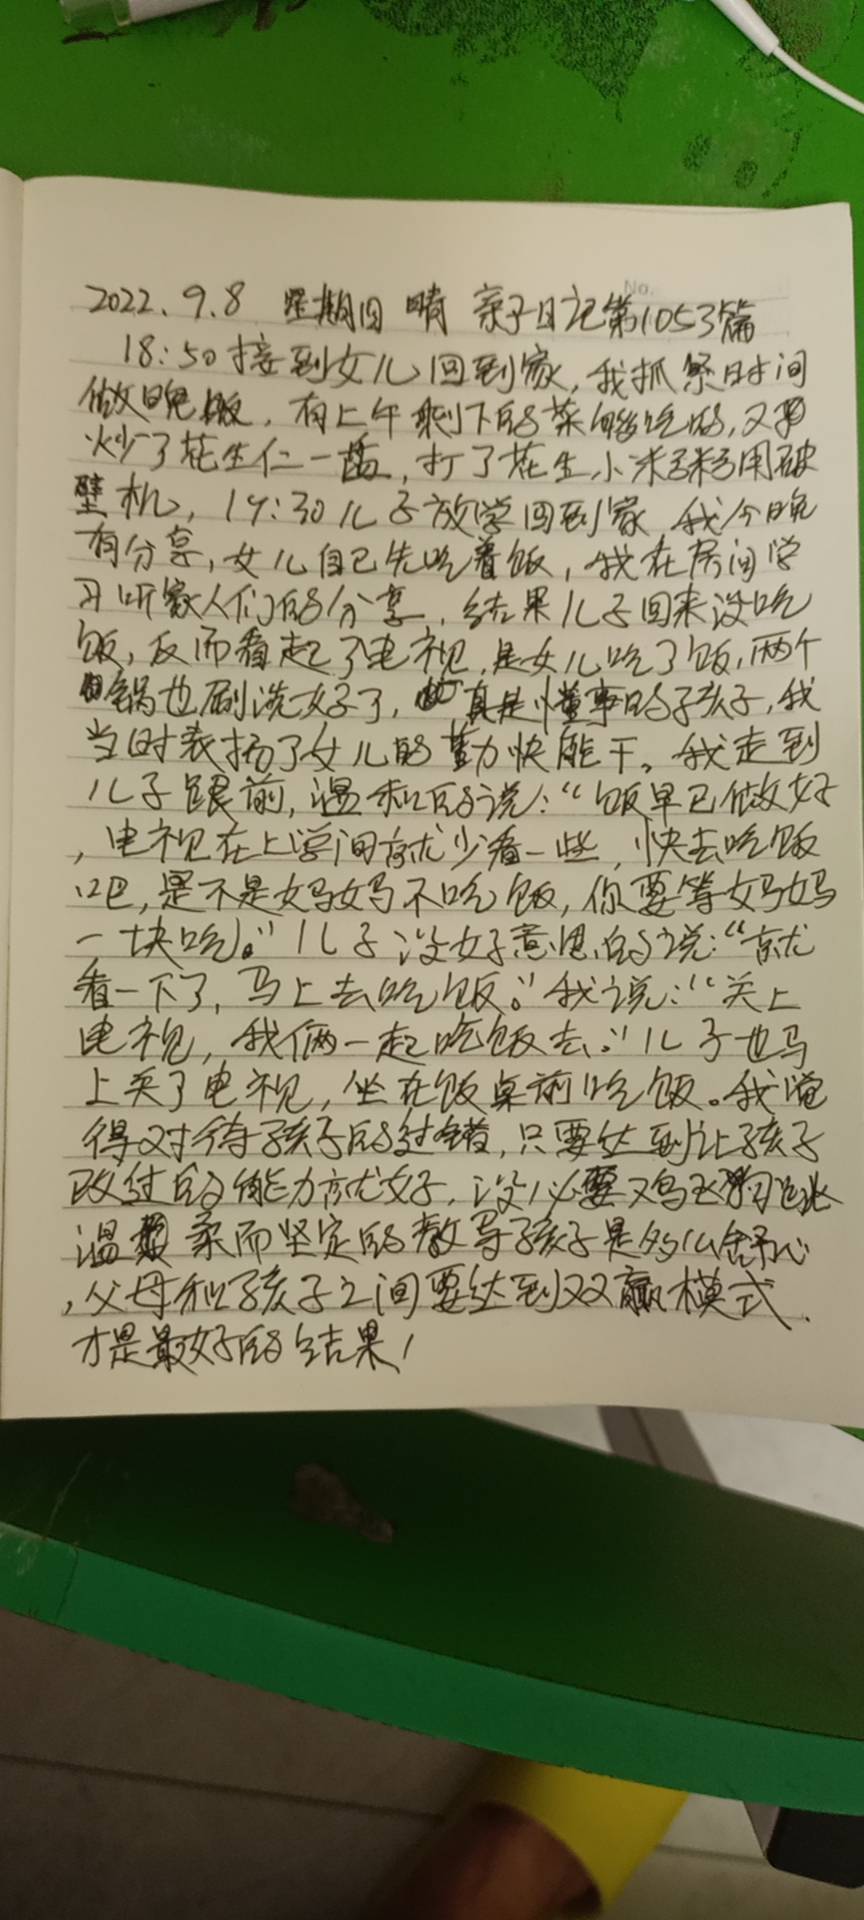 No.
2022.9.8 星期四 晴 亲子日记第1053篇
18:50接到女儿回到家,我抓紧时间
做晚饭,有上午剩下的菜够吃的,又
炒了花生仁一盘,打了花生小米粥用破
壁机,19:30儿子放学回到家 我今晚
有分享,女儿自己先吃着饭,我在房间学
习听家人们的分享,结果儿子回来没吃
饭,反而看起了电视,是女儿吃了饭,两个
锅也刷洗好了,真是懂事的孩子,我
当时表扬了女儿的勤快能干。我走到
儿子跟前,温和的说:“饭早已做好
,电视在上学间就少看一些,快去吃饭
吧,是不是妈妈不吃饭,你要等妈妈
一块吃。”儿子没好意思的说:“就
看一下了,马上去吃饭。”我说:“关上
电视,我俩一起吃饭去。”儿子也马
上关了电视,坐在饭桌前吃饭。我觉
得对待孩子的过错,只要达到让孩子
改过的能力就好,没必要鸡飞狗跳
温柔而坚定的教导孩子是多么舒心
,父母和孩子之间要达到双赢模式.
才是最好的结果!